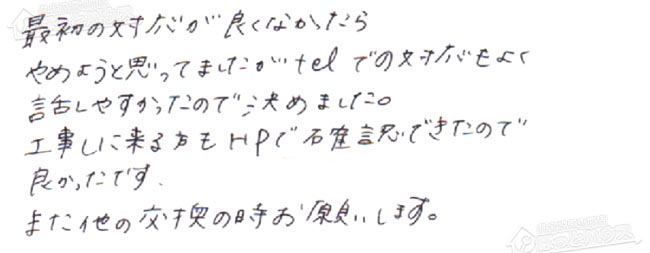 最初の対応が良くなかったら
やめようと思ってましたがtelでの対応もよく
話しやすかったので決めました。
工事しに来る方もHPで確認できたので
良かったです.
また他の交換の時お願いします。